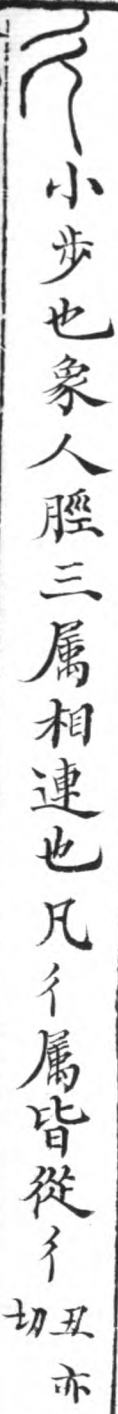 彳小步也象人脛三属相連也凡彳属皆從彳丑亦切